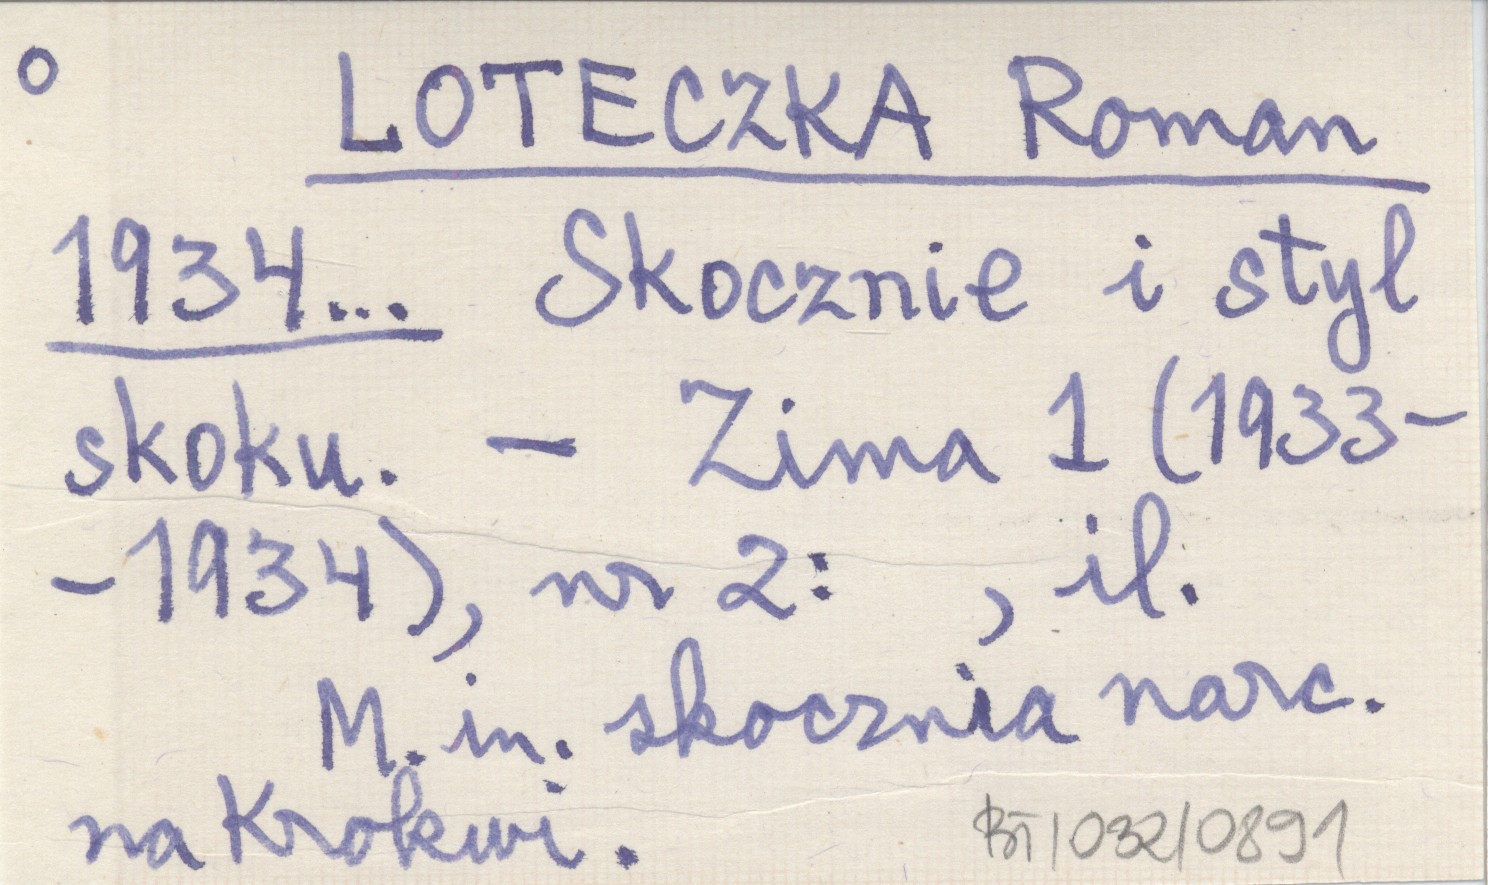 o LOTECZKA Roman
1934... Skocznie i styl
skoku. - Zima 1 (1933-
-1934), nr 2:   , il.
M. in. skocznia narc.
na Krokwi.
BT/032/0891